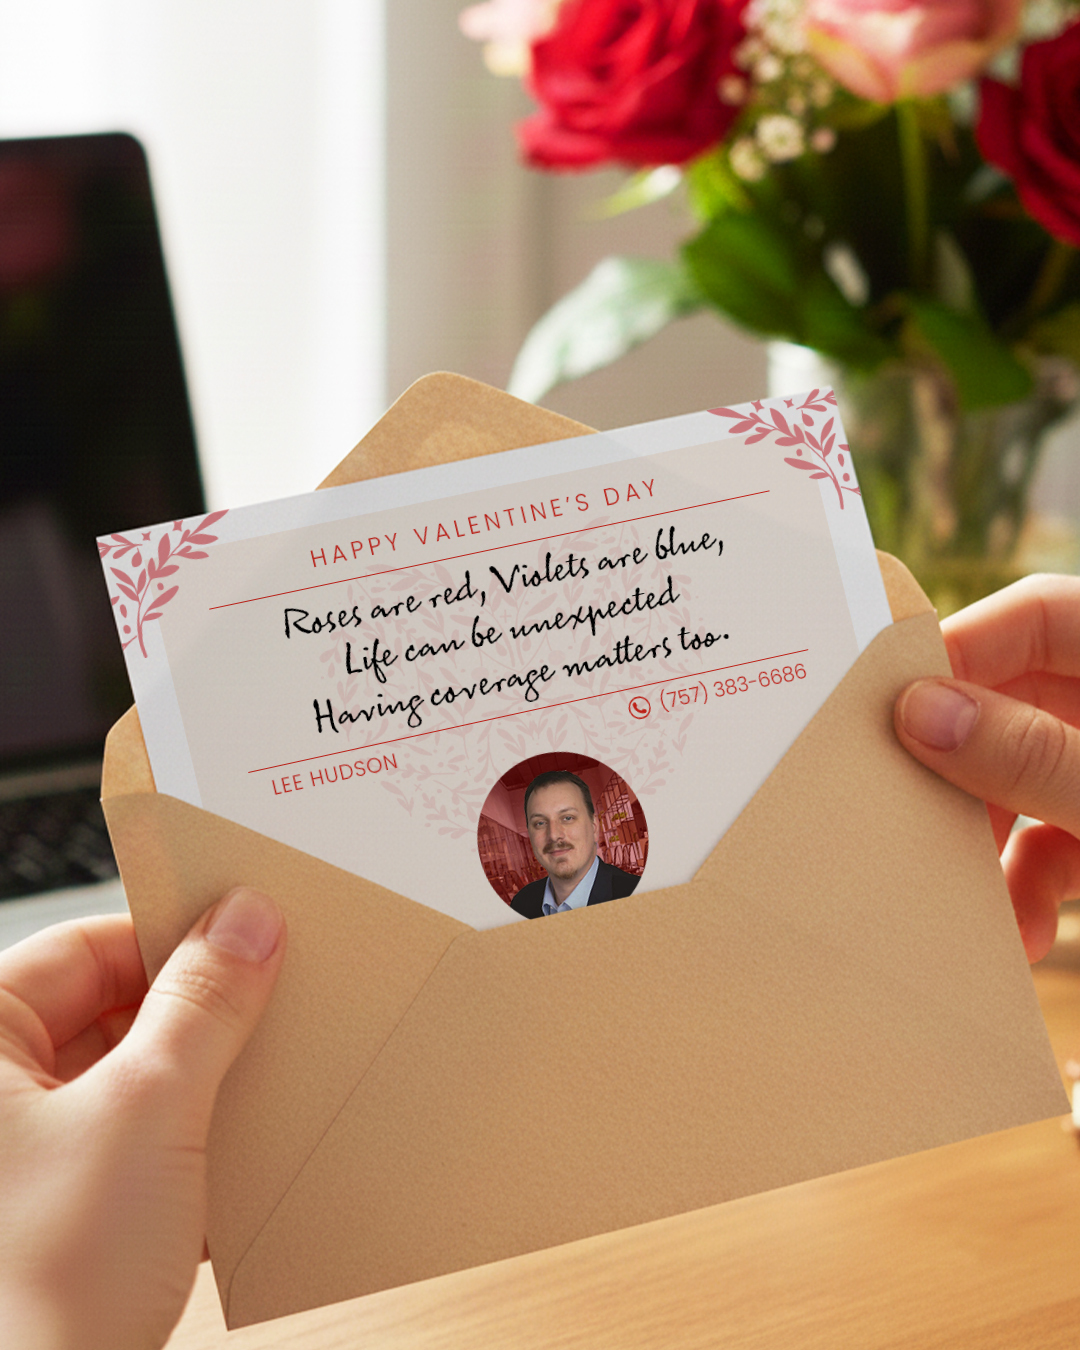 HAPPY VALENTINE'S DAY
Roses are red, Violets are blue,
Life can be unexpected
Having coverage matters too.
(757) 383-6686
LEE HUDSON